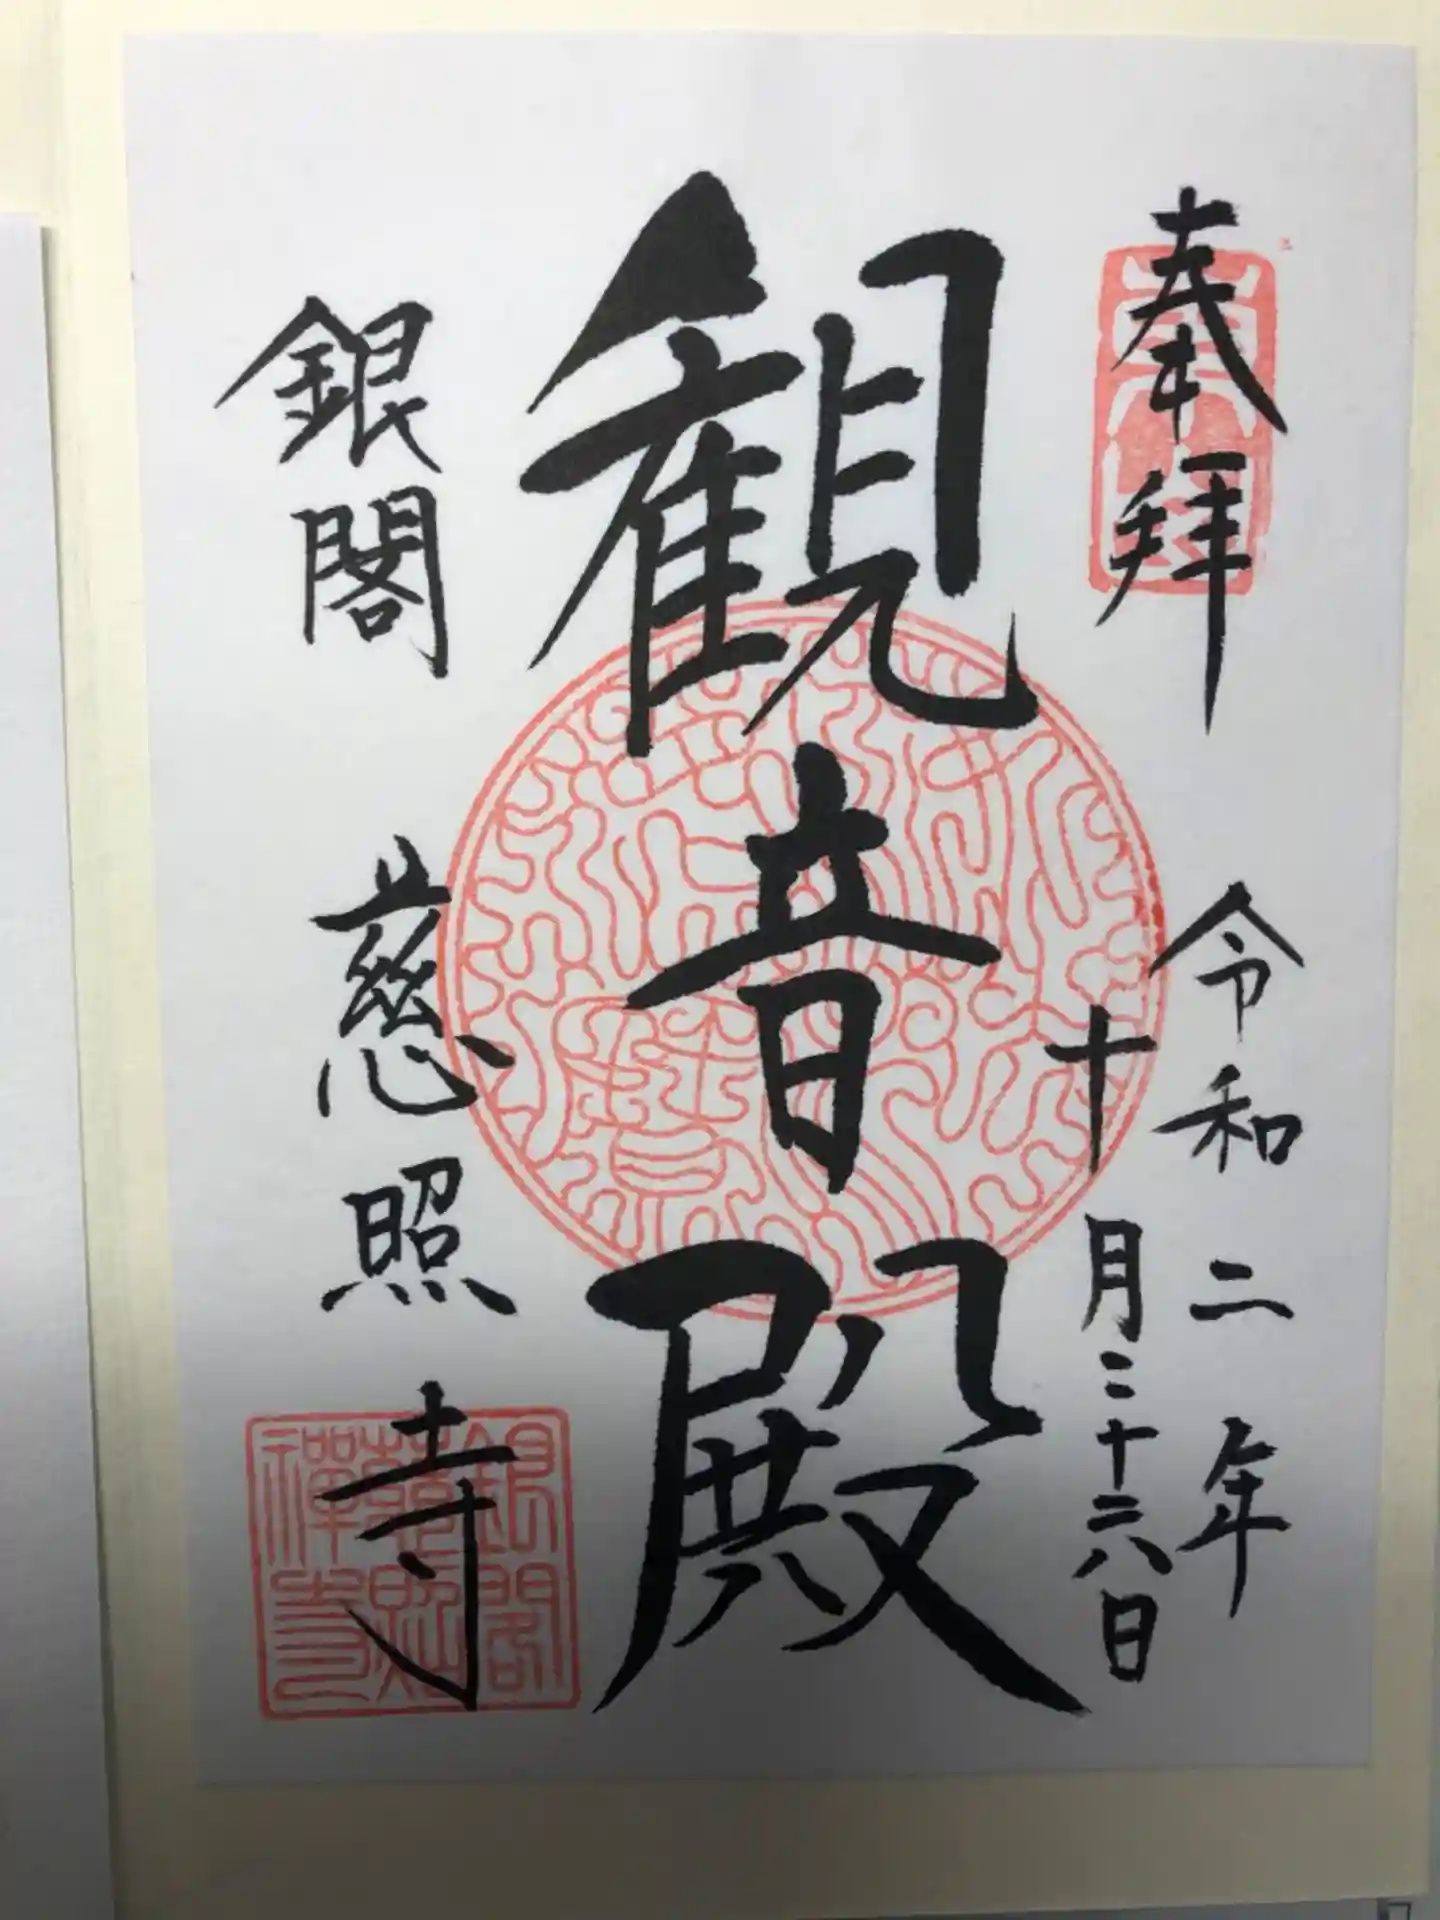 奉拝
令和二年
十月二十六日
観音殿
銀閣 慈照寺
銀閣
慈照
禪寺